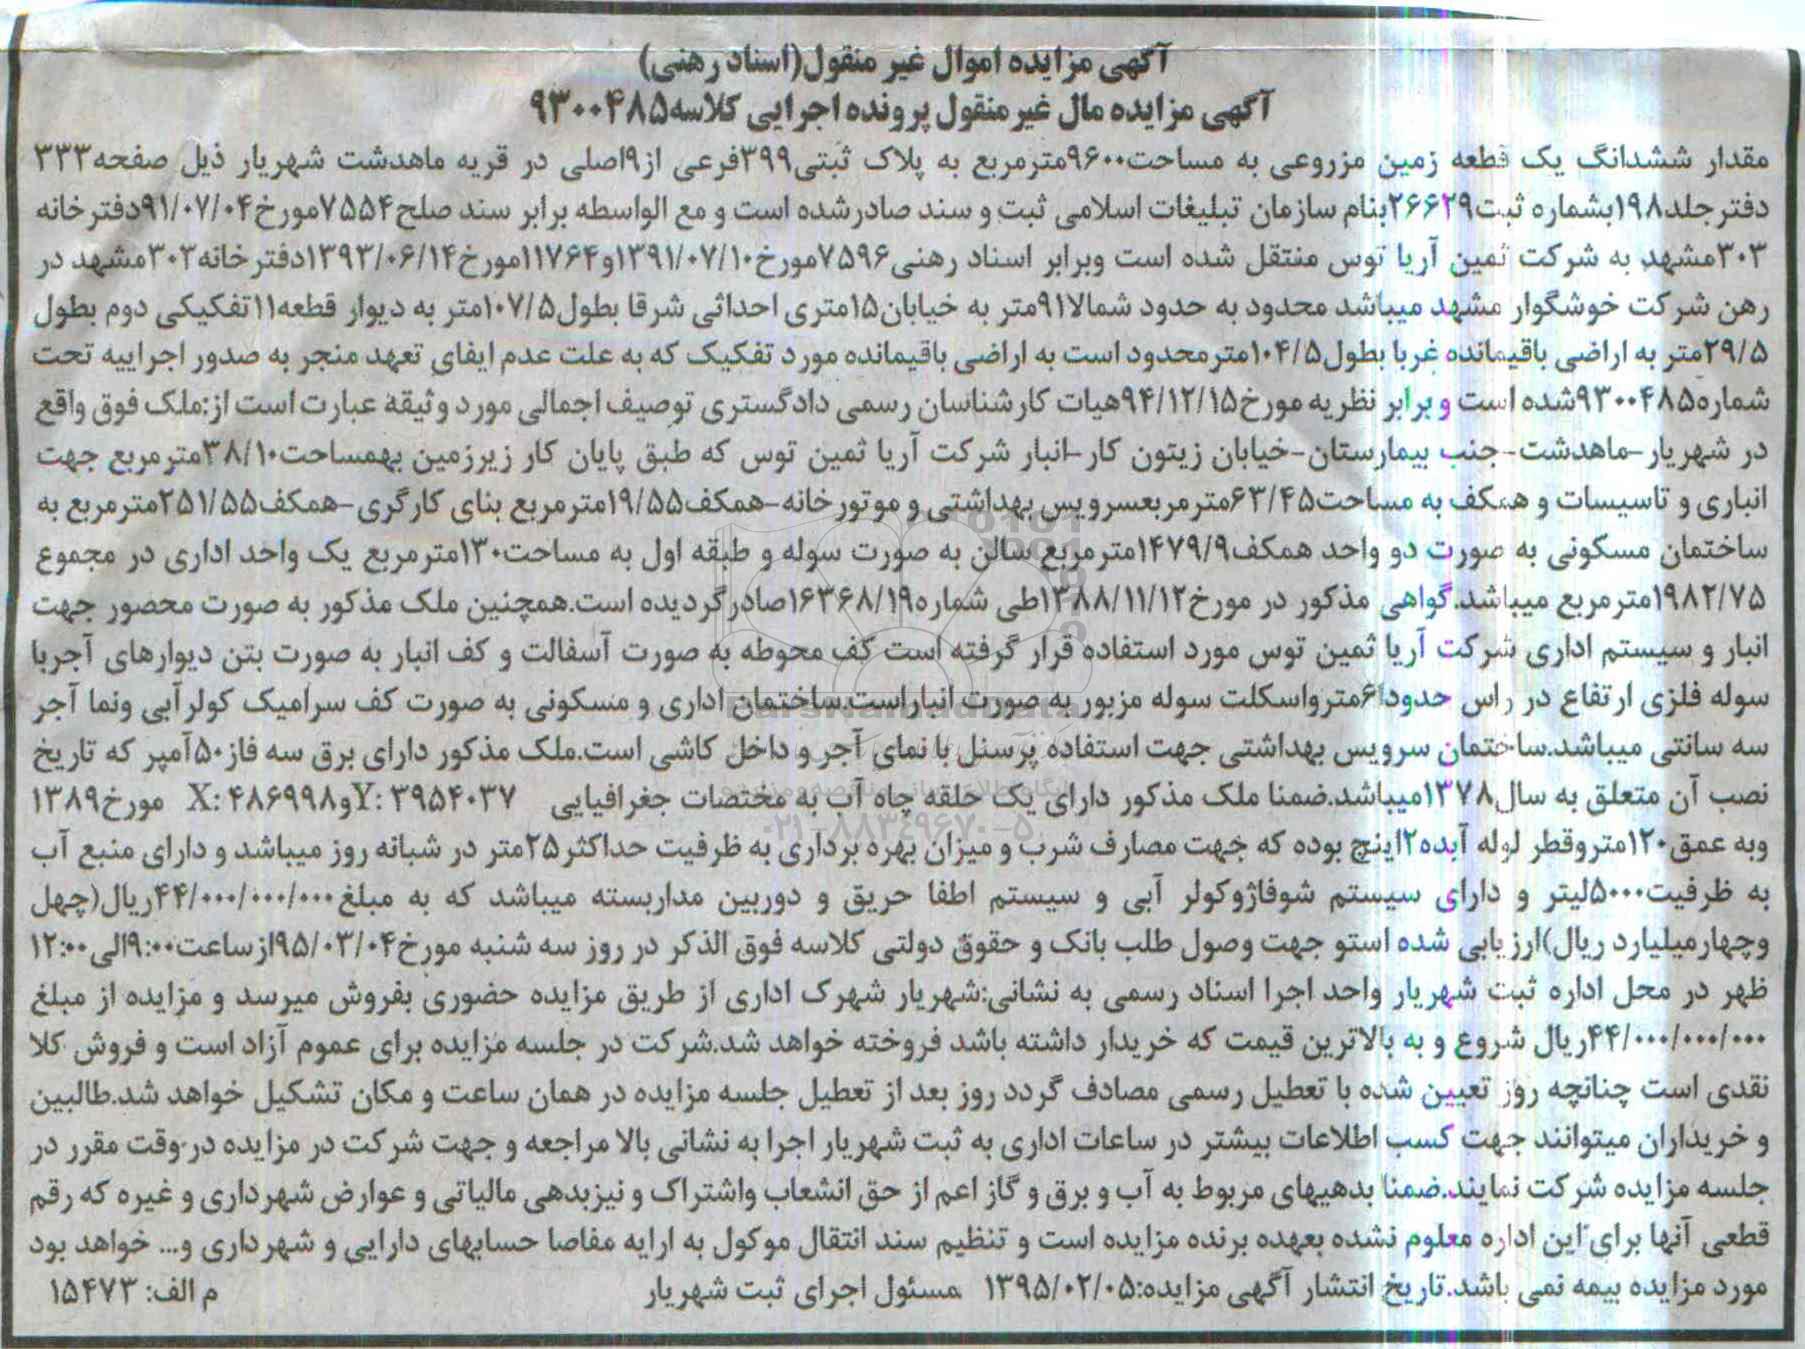 آگهی مزایده اموال غیر منقول(اسناد رهنی)
آگهی مزایده مال غیرمنقول پرونده اجرایی کلاسه۹۳۰۰۴۸۵
مقدار ششدانگ یک قطعه زمین مزروعی به مساحت۹۶۰۰مترمربع به پلاک ثبتی۳۹۹فرعی از۹اصلی در قریه ماهدشت شهریار ذیل صفحه۳۳۳
دفترجلد۱۹۸بشماره ثبت۲۶۶۲۹بنام سازمان تبلیغات اسلامی ثبت و سند صادرشده است و مع الواسطه برابر سند صلح۷۵۵۴مورخ۹۱/۰۷/۰۴دفترخانه
۳۰۳مشهد به شرکت ثمین آریا توس منتقل شده است وبرابر اسناد رهنی۷۵۹۶مورخ۱۳۹۱/۰۷/۱۰و۱۱۷۶۴مورخ۱۳۹۳/۰۶/۱۴دفترخانه۳۰۳مشهد در
رهن شرکت خوشگوار مشهد میباشد محدود به حدود شمالا۹۱متر به خیابان۱۵متری احداثی شرقا بطول۱۰۷/۵متر به دیوار قطعه۱۱تفکیکی دوم بطول
۲۹/۵متر به اراضی باقیمانده غربا بطول۱۰۴/۵مترمحدود است به اراضی باقیمانده مورد تفکیک که به علت عدم ایفای تعهد منجر به صدور اجراییه تحت
شماره۹۳۰۰۴۸۵شده است و برابر نظریه مورخ۹۴/۱۲/۱۵هیات کارشناسان رسمی دادگستری توصیف اجمالی مورد وثیقه عبارت است از:ملک فوق واقع
در شهریار-ماهدشت-جنب بیمارستان-خیابان زیتون کار-انبار شرکت آریا ثمین توس که طبق پایان کار زیرزمین بهمساحت۳۸/۱۰مترمربع جهت
انباری و تاسیسات و همکف به مساحت۶۳/۴۵مترمربعسرویس بهداشتی و موتورخانه-همکف۱۹/۵۵مترمربع بنای کارگری-همکف۲۵۱/۵۵مترمربع به
ساختمان مسکونی به صورت دو واحد همکف۱۴۷۹/۹مترمربع سالن به صورت سوله و طبقه اول به مساحت۱۳۰مترمربع یک واحد اداری در مجموع
۱۹۸۲/۷۵مترمربع میباشد.گواهی مذکور در مورخ۱۳۸۸/۱۱/۱۲طی شماره۱۶۳۶۸/۱۹صادرگردیده است.همچنین ملک مذکور به صورت محصور جهت
انبار و سیستم اداری شرکت آریا ثمین توس مورد استفاده قرار گرفته است کف محوطه به صورت آسفالت و کف انبار به صورت بتن دیوارهای آجربا
سوله فلزی ارتفاع در راس حدودا۶مترواسکلت سوله مزبور به صورت انباراست.ساختمان اداری و مسکونی به صورت کف سرامیک کولرآبی ونما آجر
سه سانتی میباشد.ساختمان سرویس بهداشتی جهت استفاده پرسنل با نمای آجر و داخل کاشی است.ملک مذکور دارای برق سه فاز۵۰آمپر که تاریخ
نصب آن متعلق به سال۱۳۷۸میباشد.ضمنا ملک مذکور دارای یک حلقه چاه آب به مختصات جغرافیایی Y: ۳۹۵۴۰۳۷وX: ۴۸۶۹۹۸ مورخ۱۳۸۹
وبه عمق۱۲۰متروقطر لوله آبده۲اینچ بوده که جهت مصارف شرب و میزان بهره برداری به ظرفیت حداکثر۲۵متر در شبانه روز میباشد و دارای منبع آب
به ظرفیت۵۰۰۰لیتر و دارای سیستم شوفاژوکولر آبی و سیستم اطفا حریق و دوربین مداربسته میباشد که به مبلغ۴۴/۰۰۰/۰۰۰/۰۰۰ریال(چهل
وچهارمیلیارد ریال)ارزیابی شده استو جهت وصول طلب بانک و حقوق دولتی کلاسه فوق الذکر در روز سه شنبه مورخ۹۵/۰۳/۰۴ازساعت۹:۰۰الی۱۲:۰۰
ظهر در محل اداره ثبت شهریار واحد اجرا اسناد رسمی به نشانی:شهریار شهرک اداری از طریق مزایده حضوری بفروش میرسد و مزایده از مبلغ
۴۴/۰۰۰/۰۰۰/۰۰۰ریال شروع و به بالاترین قیمت که خریدار داشته باشد فروخته خواهد شد.شرکت در جلسه مزایده برای عموم آزاد است و فروش کلا
نقدی است چنانچه روز تعیین شده با تعطیل رسمی مصادف گردد روز بعد از تعطیل جلسه مزایده در همان ساعت و مکان تشکیل خواهد شد.طالبین
و خریداران میتوانند جهت کسب اطلاعات بیشتر در ساعات اداری به ثبت شهریار اجرا به نشانی بالا مراجعه و جهت شرکت در مزایده در وقت مقرر در
جلسه مزایده شرکت نمایند.ضمنا بدهیهای مربوط به آب و برق و گاز اعم از حق انشعاب واشتراک و نیزبدهی مالیاتی و عوارض شهرداری و غیره که رقم
قطعی آنها برای این اداره معلوم نشده بعهده برنده مزایده است و تنظیم سند انتقال موکول به ارایه مفاصا حسابهای دارایی و شهرداری و... خواهد بود
مورد مزایده بیمه نمی باشد.تاریخ انتشار آگهی مزایده:۱۳۹۵/۰۲/۰۵ مسئول اجرای ثبت شهریار م الف: ۱۵۴۷۳
۰۲۱-۸۸۳۴۹۶۷۰-۵